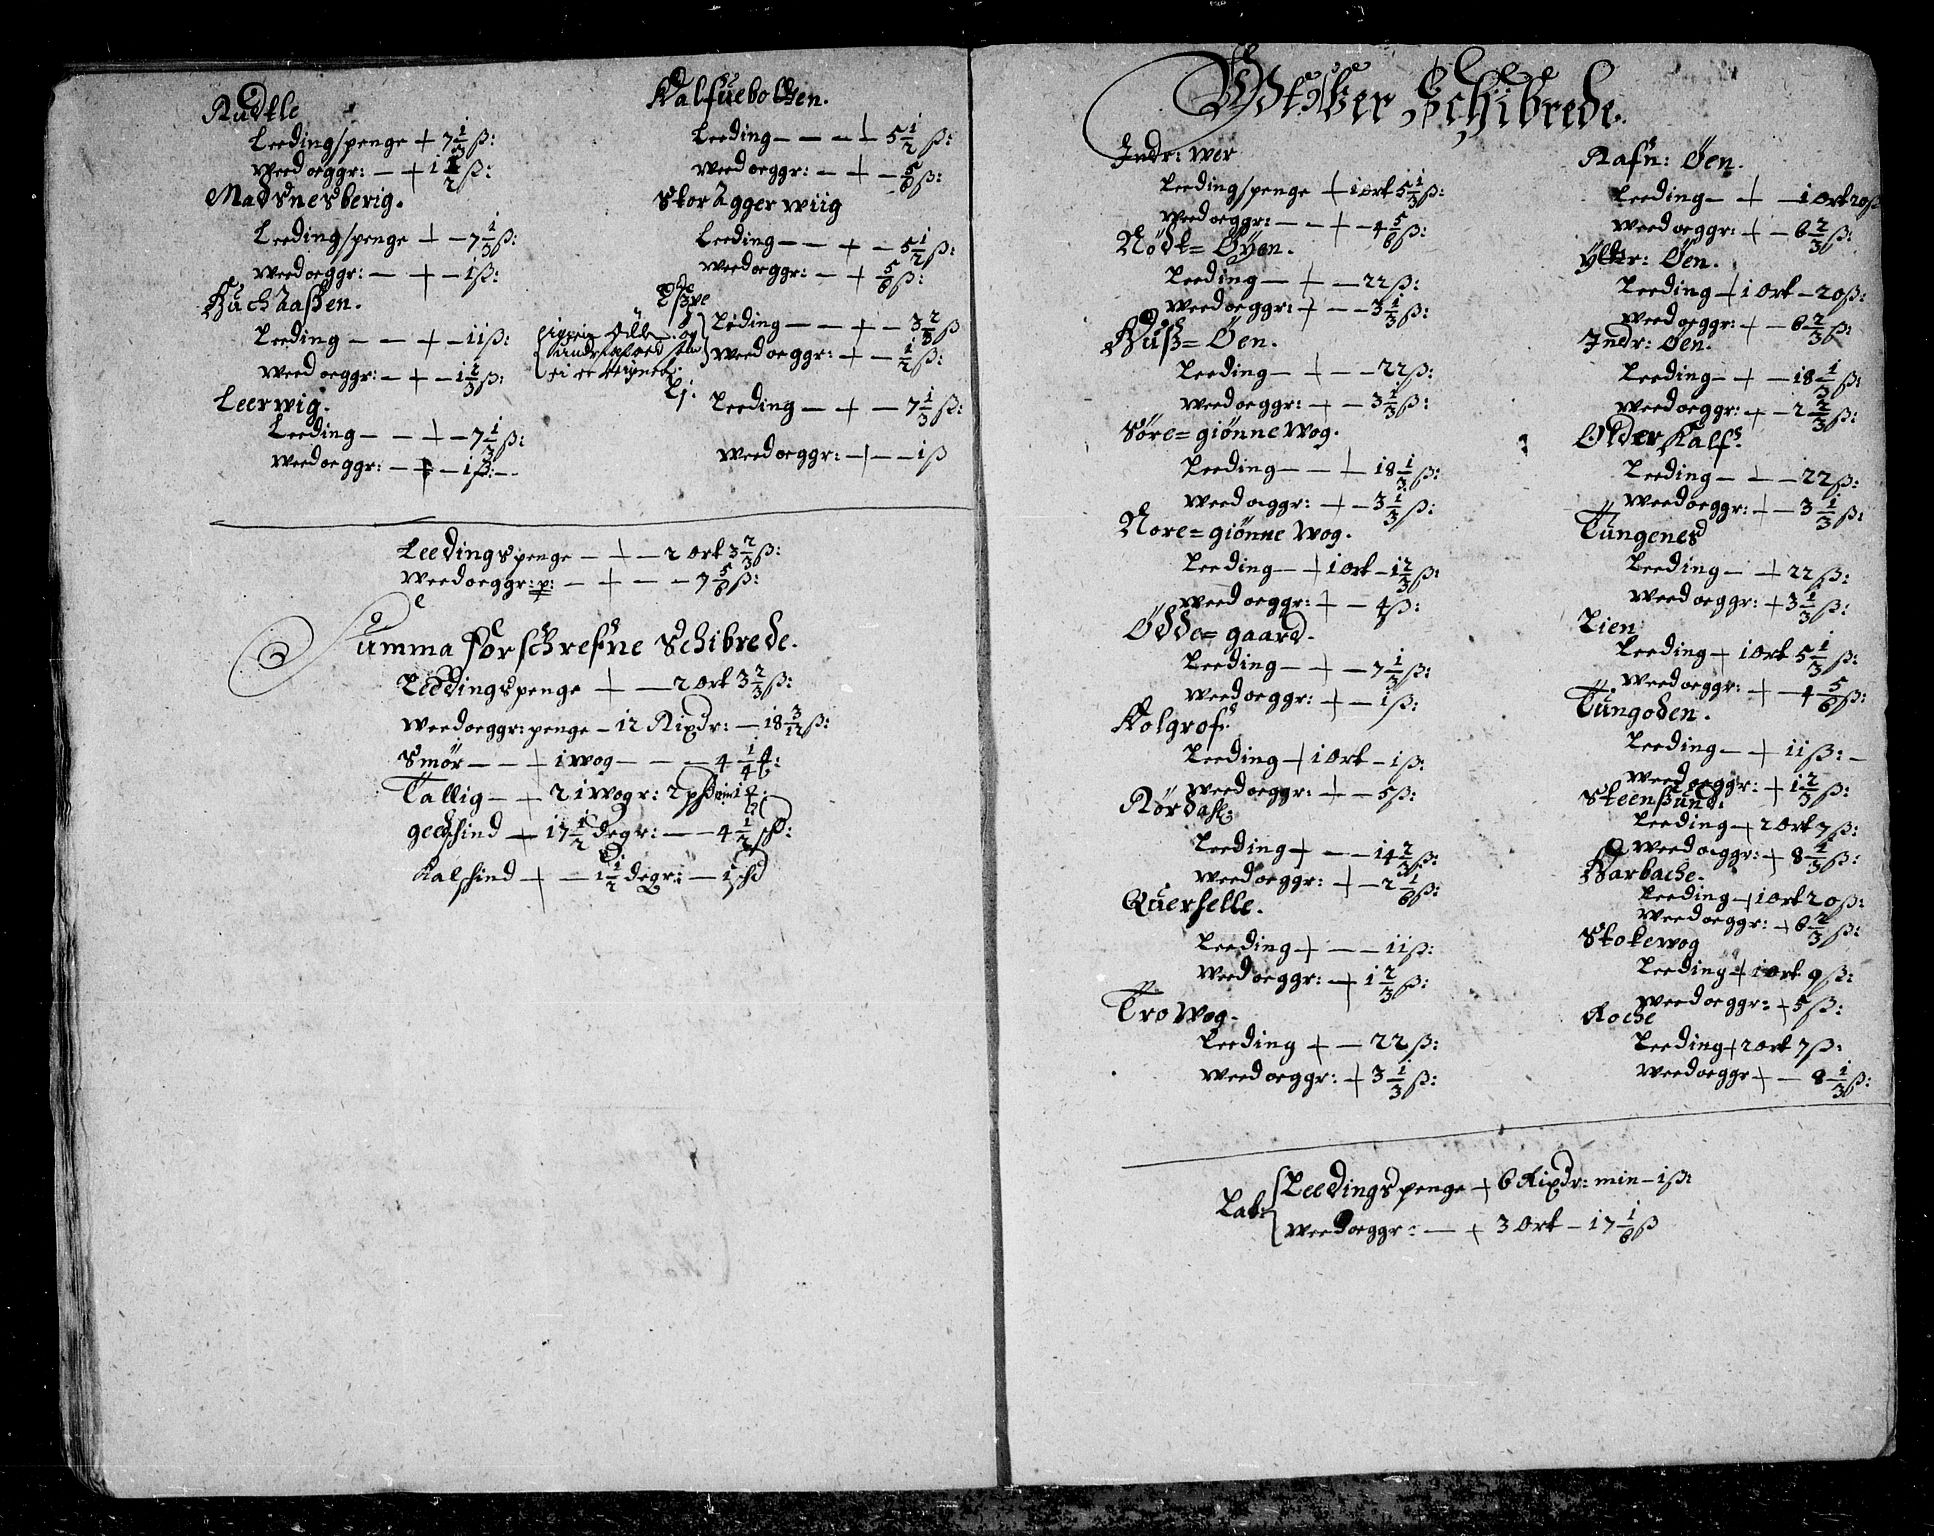 Rudtle
Leedingspenge + 7 1/3 ß:
Weedoeggr: — + 1 1/2 ß:
Madsnesberig.
Leedingspenge + — 7 1/3 ß:
Weedoeggr: — + — 1 ß:
Buchaassen.
Leeding — — + — 11 ß:
Weedoeggr: — + — 1 2/3 ß:
Leerwig.
Leeding — — + — 7 1/3 ß:
Weedoeggr: — + — 1 ß: —
Kalfuebotten.
Leeding — — — + 5 1/2 ß:
Weedoeggr: — + — 5/6 ß:
Storagger wiig
Leeding — — + — 5 1/2 ß:
Weedoeggr: — + 5/6 ß:
Leding — — + — 3 2/3 ß
Weedoeggr: — + — 1/2 ß:
Ej:
Leeding — + — 7 1/3 ß:
Weedoeggr: + — — 1 ß
Leedingspenge — + — 2 Ort 3 2/3 ß:
Weedoeggr: p: — + — — 7 5/6 ß:
Summa forschrefne Schibrede.
Leedingspenge + — 2 Ort 3 2/3 ß:
Weedoeggr: penge — 12 Rixdr: — 18 3/12 ß:
Smör — — + 1 wog — — — 4 1/4 ℔:
Tallig — + 21 wogr: 2 pd min 1 ℔:
geedschind + 17 1/2 degr: — — 4 1/2 schd:
Kalschind + — 1 1/2 degr: — 1 schd
Utvær Schibrede.
Indr: wer
Leedingspenge + 1 Ort 5 1/3 ß:
Weedoeggr: — — + — 4 5/6 ß:
Nödt= Öyen.
Leeding — + — 22 ß:
Weedoeggr: + — 3 1/3 ß:
Huß= Öen.
Leeding — + — — 22 ß:
Weedoeggr: — + — 3 1/3 ß:
Söre= giönne Wog.
Leeding — — + 18 1/3 ß:
Weedoeggr: — + — 3 1/3 ß:
Nore= giönne Wog.
Leeding — + 1 Ort — 1 2/3 ß:
Weedoeggr: + — 4 ß:
Ödde= gaard.
Leeding — + — 7 1/3 ß:
Weedoeggr: — + — 1 ß:
Kolgrof.
Leeding + 1 Ort — 1 ß:
Weedoeggr: + — 5 ß:
Nördahl:
Leeding + — — 14 2/3 ß:
Weedoeggr: + — 2 1/6 ß:
Querhelle.
Leeding + — — 11 ß:
Weedoeggr: + 1 2/3 ß:
Tro Wog.
Leeding + — 22 ß:
Weedoeggr: + 3 1/3 ß:
Rafn: Öen.
Leeding — + — 1 Ort 20 ß
Weedoeggr: + — 6 2/3 ß:
Ytter: Öen.
Leeding + 1 Ort — 20 ß:
Weedoeggr: + — 6 2/3 ß:
Indr: Öen.
Leeding — + — 18 1/3 ß:
Weedoeggr: + — 2 2/3 ß:
Older Kalf.
Leeding — — — 22 ß:
Weedoeggr: + — 3 1/3 ß:
Tungenes
Leeding — + 22 ß:
Weedoeggr: + 3 1/3 ß:
Lien
Leeding + 1 Ort 5 1/3 ß:
Weedoeggr: + — 4 5/6 ß:
Tungoden.
Leeding — + 11 ß: —
Weedoeggr: + 1 2/3 ß:
Steensund:
Leeding + 2 Ort 7 ß:
Weedoeggr: + 8 1/3 ß:
Harbache.
Leeding + 1 Ort 20 ß:
Weedoeggr: + 6 2/3 ß:
Stokewog
Leeding + 1 Ort 9 ß:
Weedoeggr: + 5 ß:
Roche
Leeding + 2 Ort 7 ß:
Weedoeggr + — 8 1/3 ß:
Lat:
Leedingspenge + 6 Rixdr: min — 1 ß:
Weedoeggr: — + 3 Ort — 17 1/6 ß